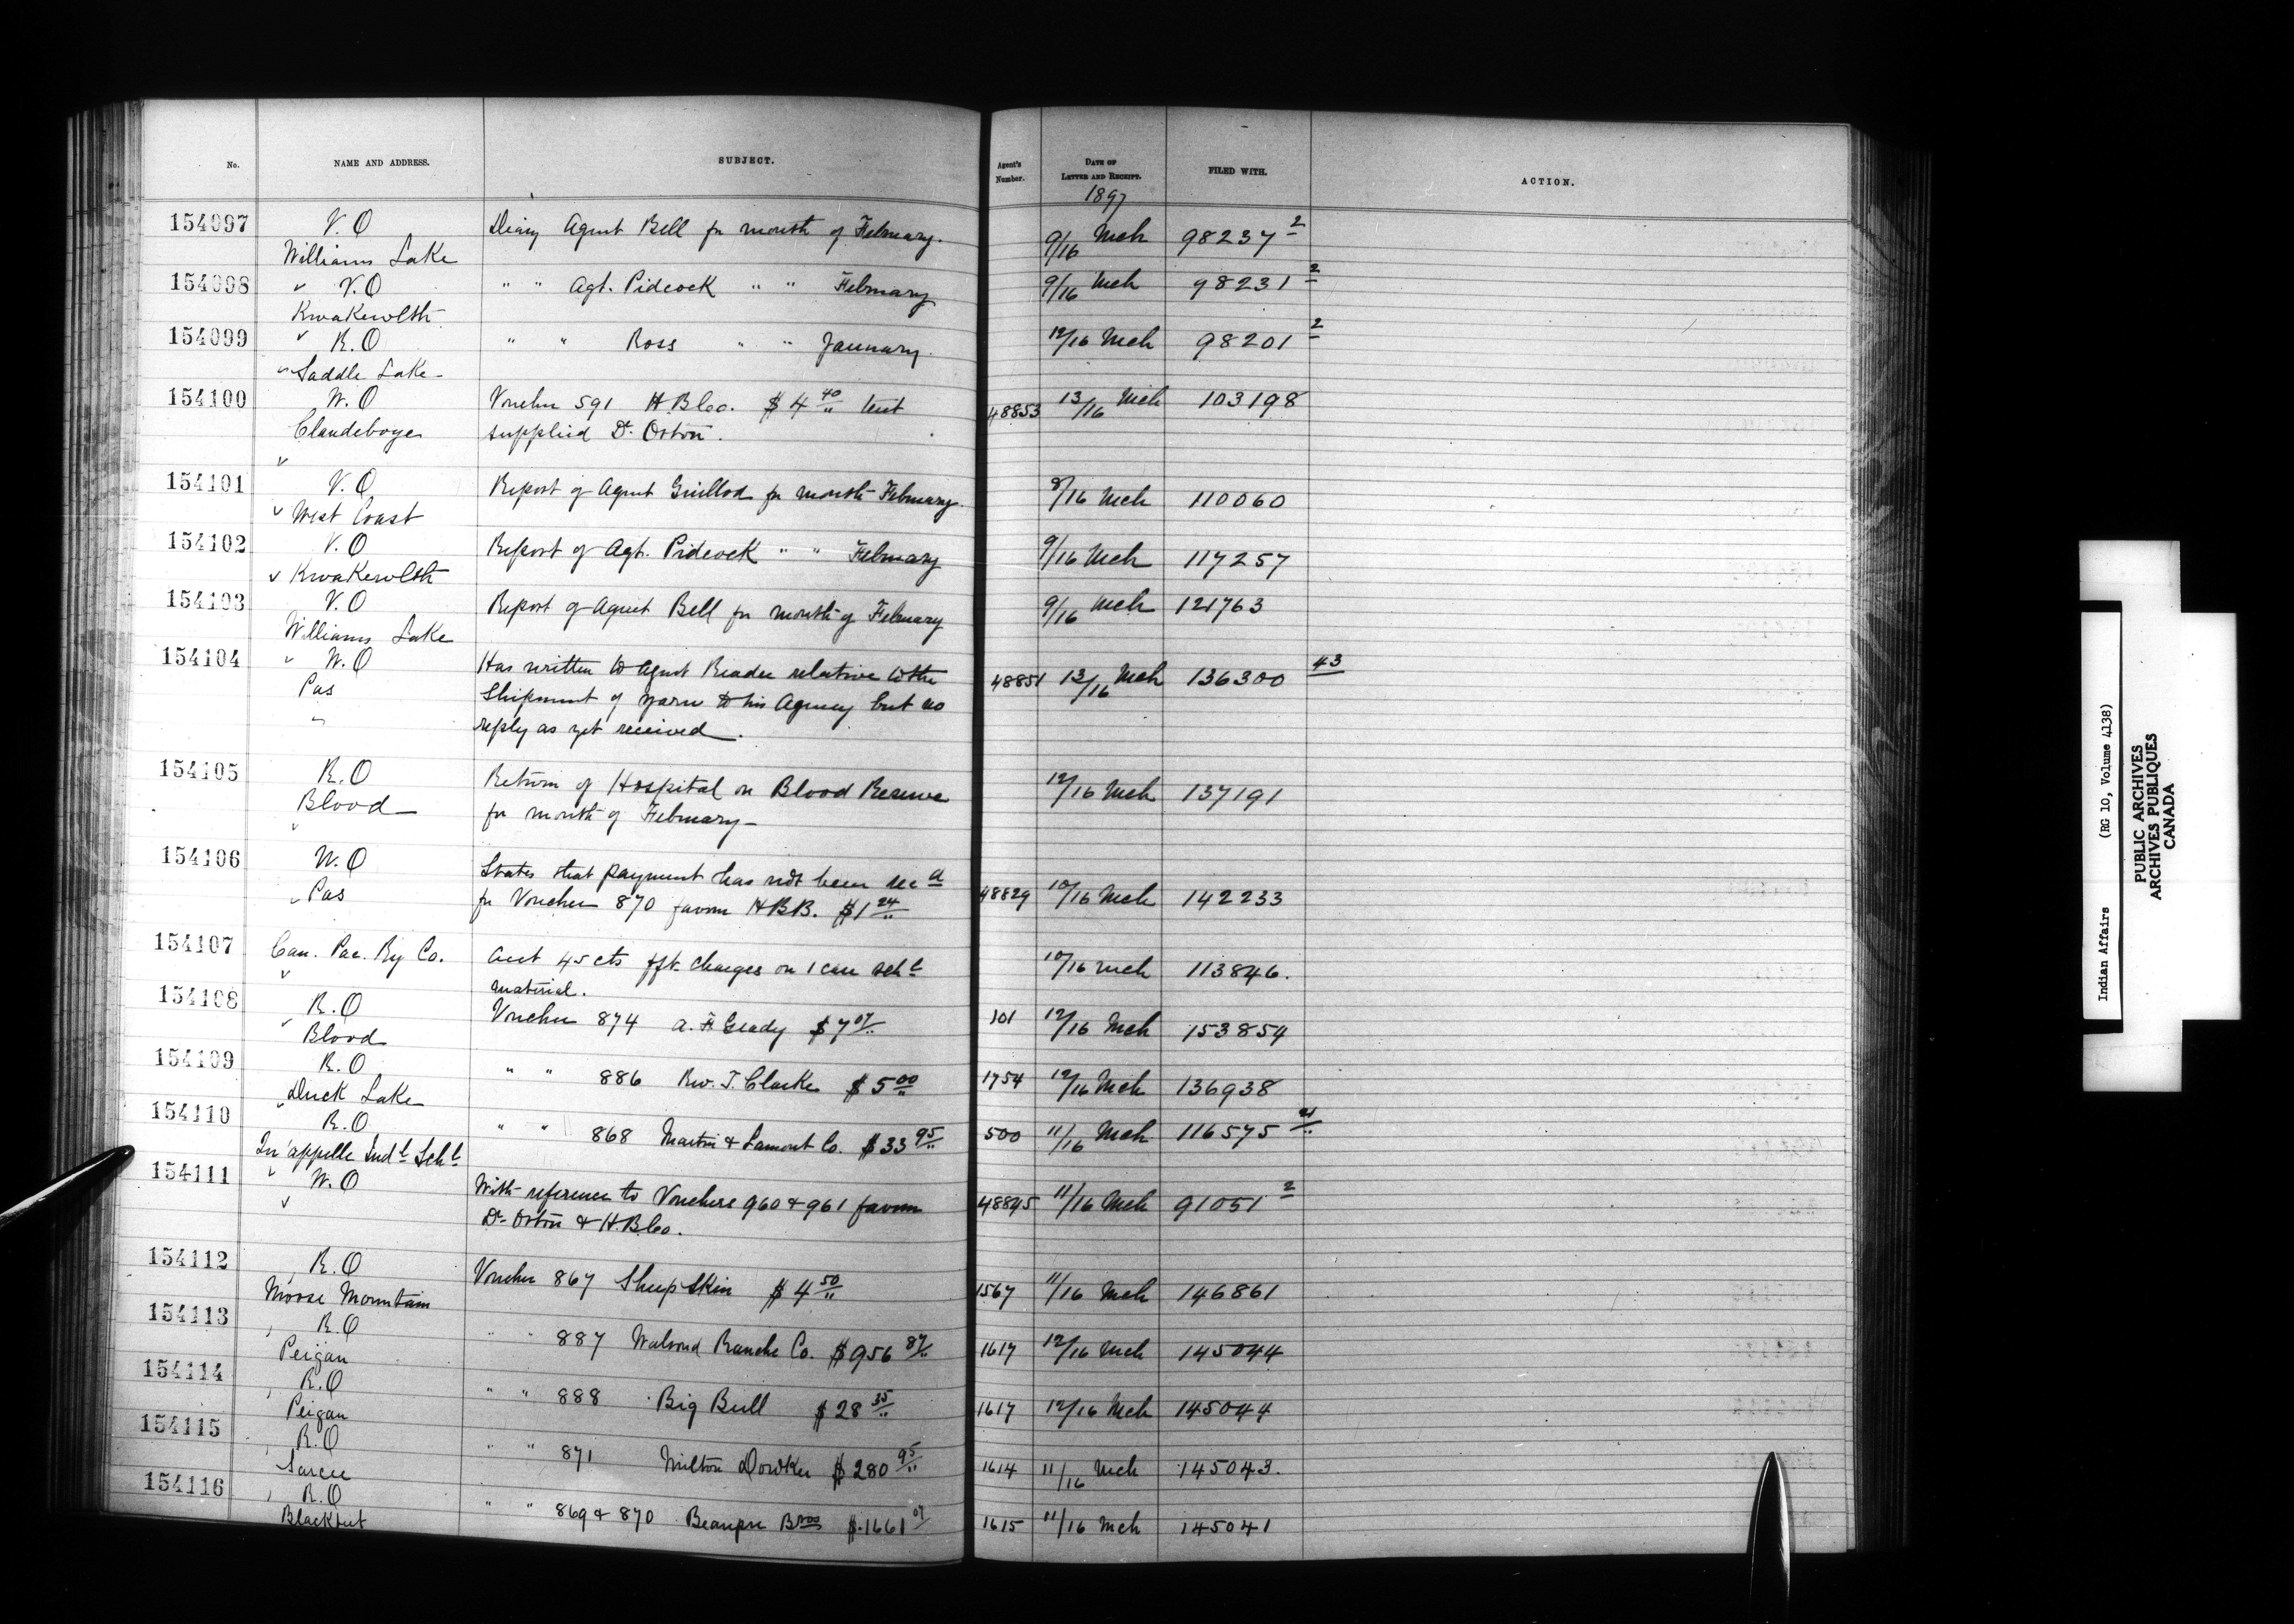 No. NAME AND ADDRESS. SUBJECT. Agent's Number. DATE OF LETTER AND RECEIPT. FILED WITH. ACTION.
1897
154097 V.O Diary Agent Bell for month of February. 9/16 Mch 98237 2
Williams Lake
154098 V.O " " Agt. Pidcock " " February 9/16 Mch 98231 2
Kwakewlth
154099 R.O " " Ross " " January. 12/16 Mch 98201 2
Saddle Lake
154100 W.O Voucher 591 H.B.Co. $4 40 tent 48853 13/16 Mch 103198
Clandeboye supplied Dr. Orton.
154101 V.O Report of Agent Guillod for month February. 8/16 Mch 110060
West Coast
154102 V.O Report of Agt. Pidcock " " February 9/16 Mch 117257
Kwakewlth
154103 V.O Report of Agent Bell for month of February 9/16 Mch 121763
Williams Lake
154104 W.O Has written to Agent Reader relative to the 48851 13/16 Mch 136300 43
Pas Shipment of yarn to his Agency but no
reply as yet received.
154105 R.O Return of Hospital on Blood Reserve 12/16 Mch 137191
Blood for month of February
154106 W.O States that payment has not been recd
Pas for Voucher 870 favour H.B.B. $1 24 48829 10/16 Mch 142233
154107 Can. Pac. Ry Co. Acct 45 cts frt. charges on 1 case schl 10/16 Mch 113846.
material.
154108 R.O Voucher 874 A. F. Grady $7 07 101 12/16 Mch 153854
Blood
154109 R.O " " 886 Rev. J. Clarke $5 00 1754 12/16 Mch 136938
Duck Lake
154110 R.O " " 868 Martin & Lamont Co. $33 95 500 11/16 Mch 116575 21
Qu'appelle Indl Schl
154111 W.O With reference to Vouchers 960 & 961 favour 48845 11/16 Mch 91051 2
Dr Orton & H.B.Co.
154112 R.O Voucher 867 Sheep Skin $4 50 1567 11/16 Mch 146861
Moose Mountain
154113 R.O " " 887 Walrond Ranche Co. $956 87 1617 12/16 Mch 145044
Peigan
154114 R.O " " 888 Big Bull $28 35 1617 12/16 Mch 145044
Peigan
154115 R.O " " 871 Milton Dowker $280 95 1614 11/16 Mch 145043.
Sarcee
154116 R.O " " 869 & 870 Beaupre Bros $1661 07 1615 11/16 Mch 145041
Blackfeet
Indian Affairs (RG 10, Volume 4138)
PUBLIC ARCHIVES
ARCHIVES PUBLIQUES
CANADA